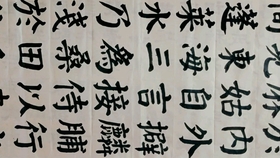 內外擗麟脯行
姑自言接侍以
見東海三為桑田
蓬萊水乃淺於